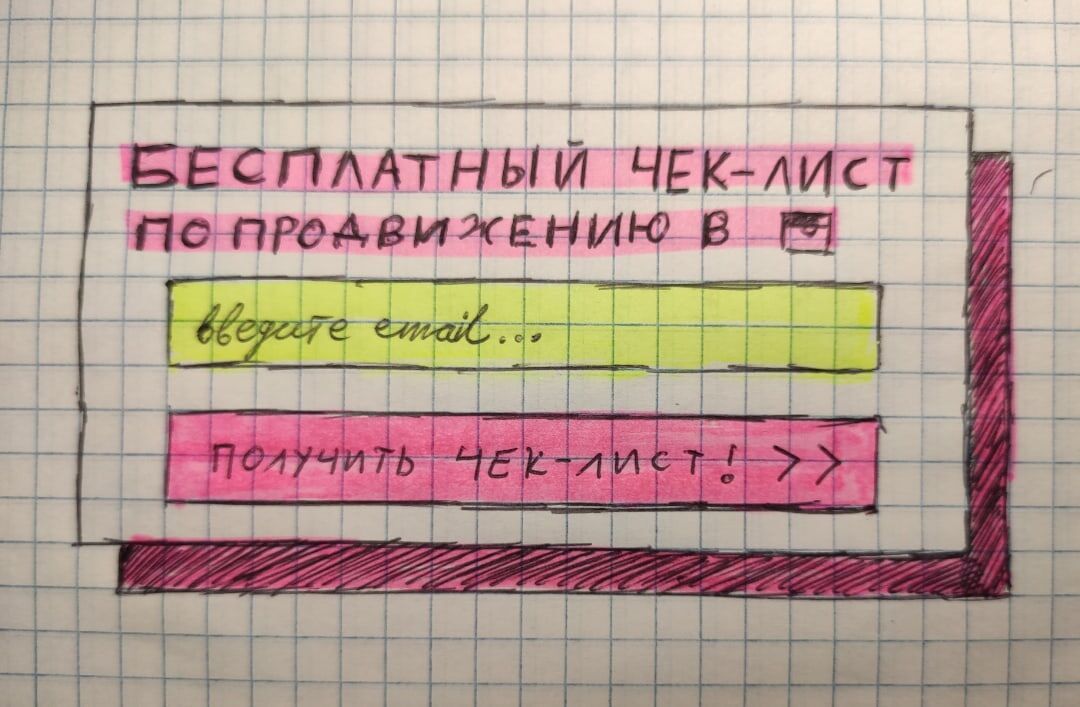 БЕСПЛАТНЫЙ ЧЕК-ЛИСТ
ПО ПРОДВИЖЕНИЮ В
введите email...
ПОЛУЧИТЬ ЧЕК-ЛИСТ! >>